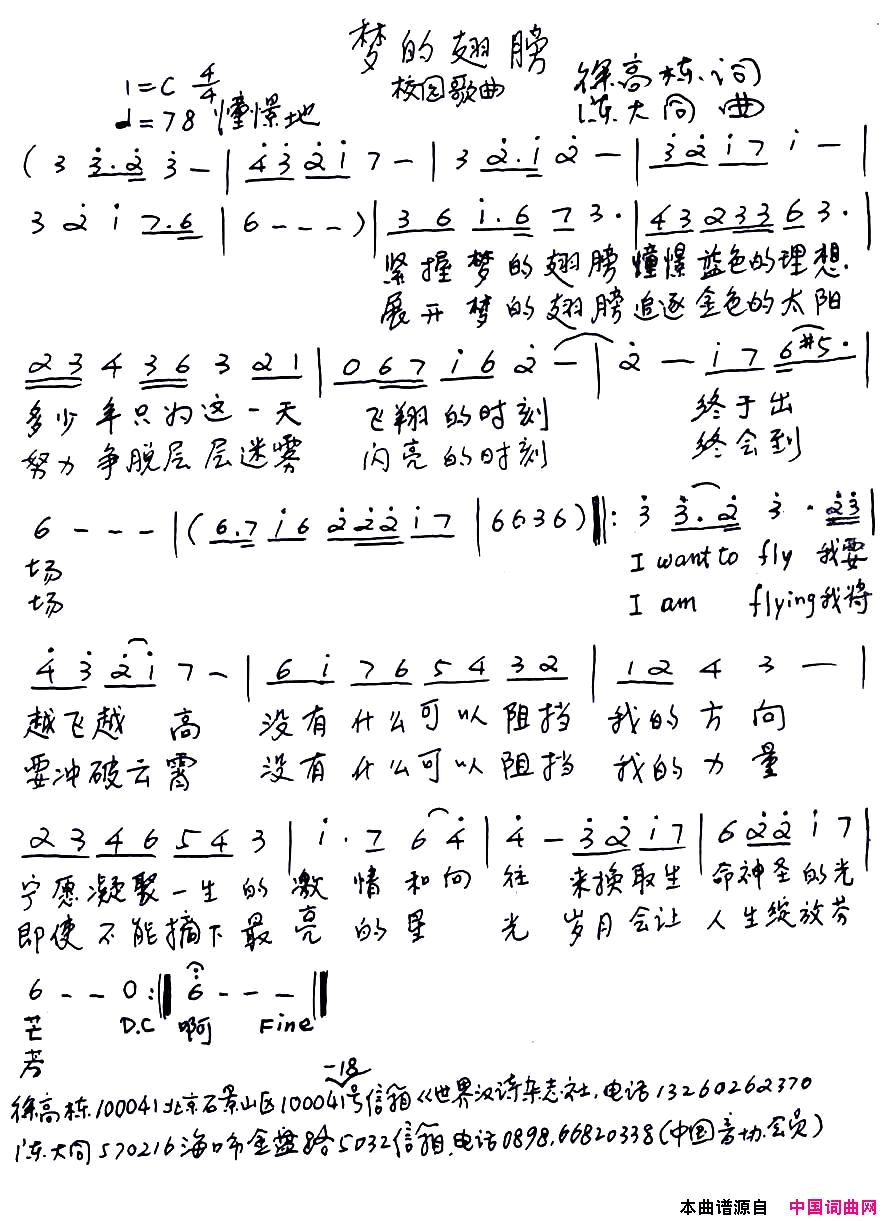 梦的翅膀
校园歌曲
1=C 4/4
♩=78 憧憬地
徐高栋 词
陈大同 曲
( 3 3̇.2̇ 3̇ - | 4̇3̇ 2̇1̇ 7 - | 3 2̇.1̇ 2̇ - | 3̇2̇ 1̇7 1̇ - |
3 2̇ 1̇ 7.6 | 6 - - - ) | 3 6 1̇.6 7 3. | 43 233 6 3. |
紧握梦的翅膀 憧憬蓝色的理想.
展开梦的翅膀 追逐金色的太阳
23 4 36 3 21 | 0 67 1̇6 2̇ - | 2̇ - 1̇7 6#5. |
多少年只为这一天 飞翔的时刻 终于出
努力争脱层层迷雾 闪亮的时刻 终会到
6 - - - | ( 6.7 1̇6 2̇2̇2̇ 1̇7 | 6 6 3 6 ) ‖: 3̇ 3̇.2̇ 3̇ . 2̇3̇ |
场 I want to fly 我要
场 I am flying 我将
4̇3̇ 2̇1̇ 7 - | 61̇ 76 54 32 | 12 4 3 - |
越飞越高 没有什么可以阻挡 我的方向
要冲破云霄 没有什么可以阻挡 我的力量
23 46 54 3 | 1̇. 7 6 4̇ | 4̇ - 3̇2̇ 1̇7 | 6 2̇2̇ 1̇ 7 |
宁愿凝聚一生的激情和向往 来换取生命神圣的光
即使不能摘下最亮的星光 岁月会让人生绽放芬
6 - - 0 :‖ 6̇ - - - ‖
芒 D.C 啊 Fine
芳
-18
徐高栋.100041北京石景山区100041号信箱《世界汉诗杂志社.电话13260262370
陈大同570216海口市金盘路5032信箱.电话0898.66820338(中国音协.会员)
本曲谱源自 中国词曲网